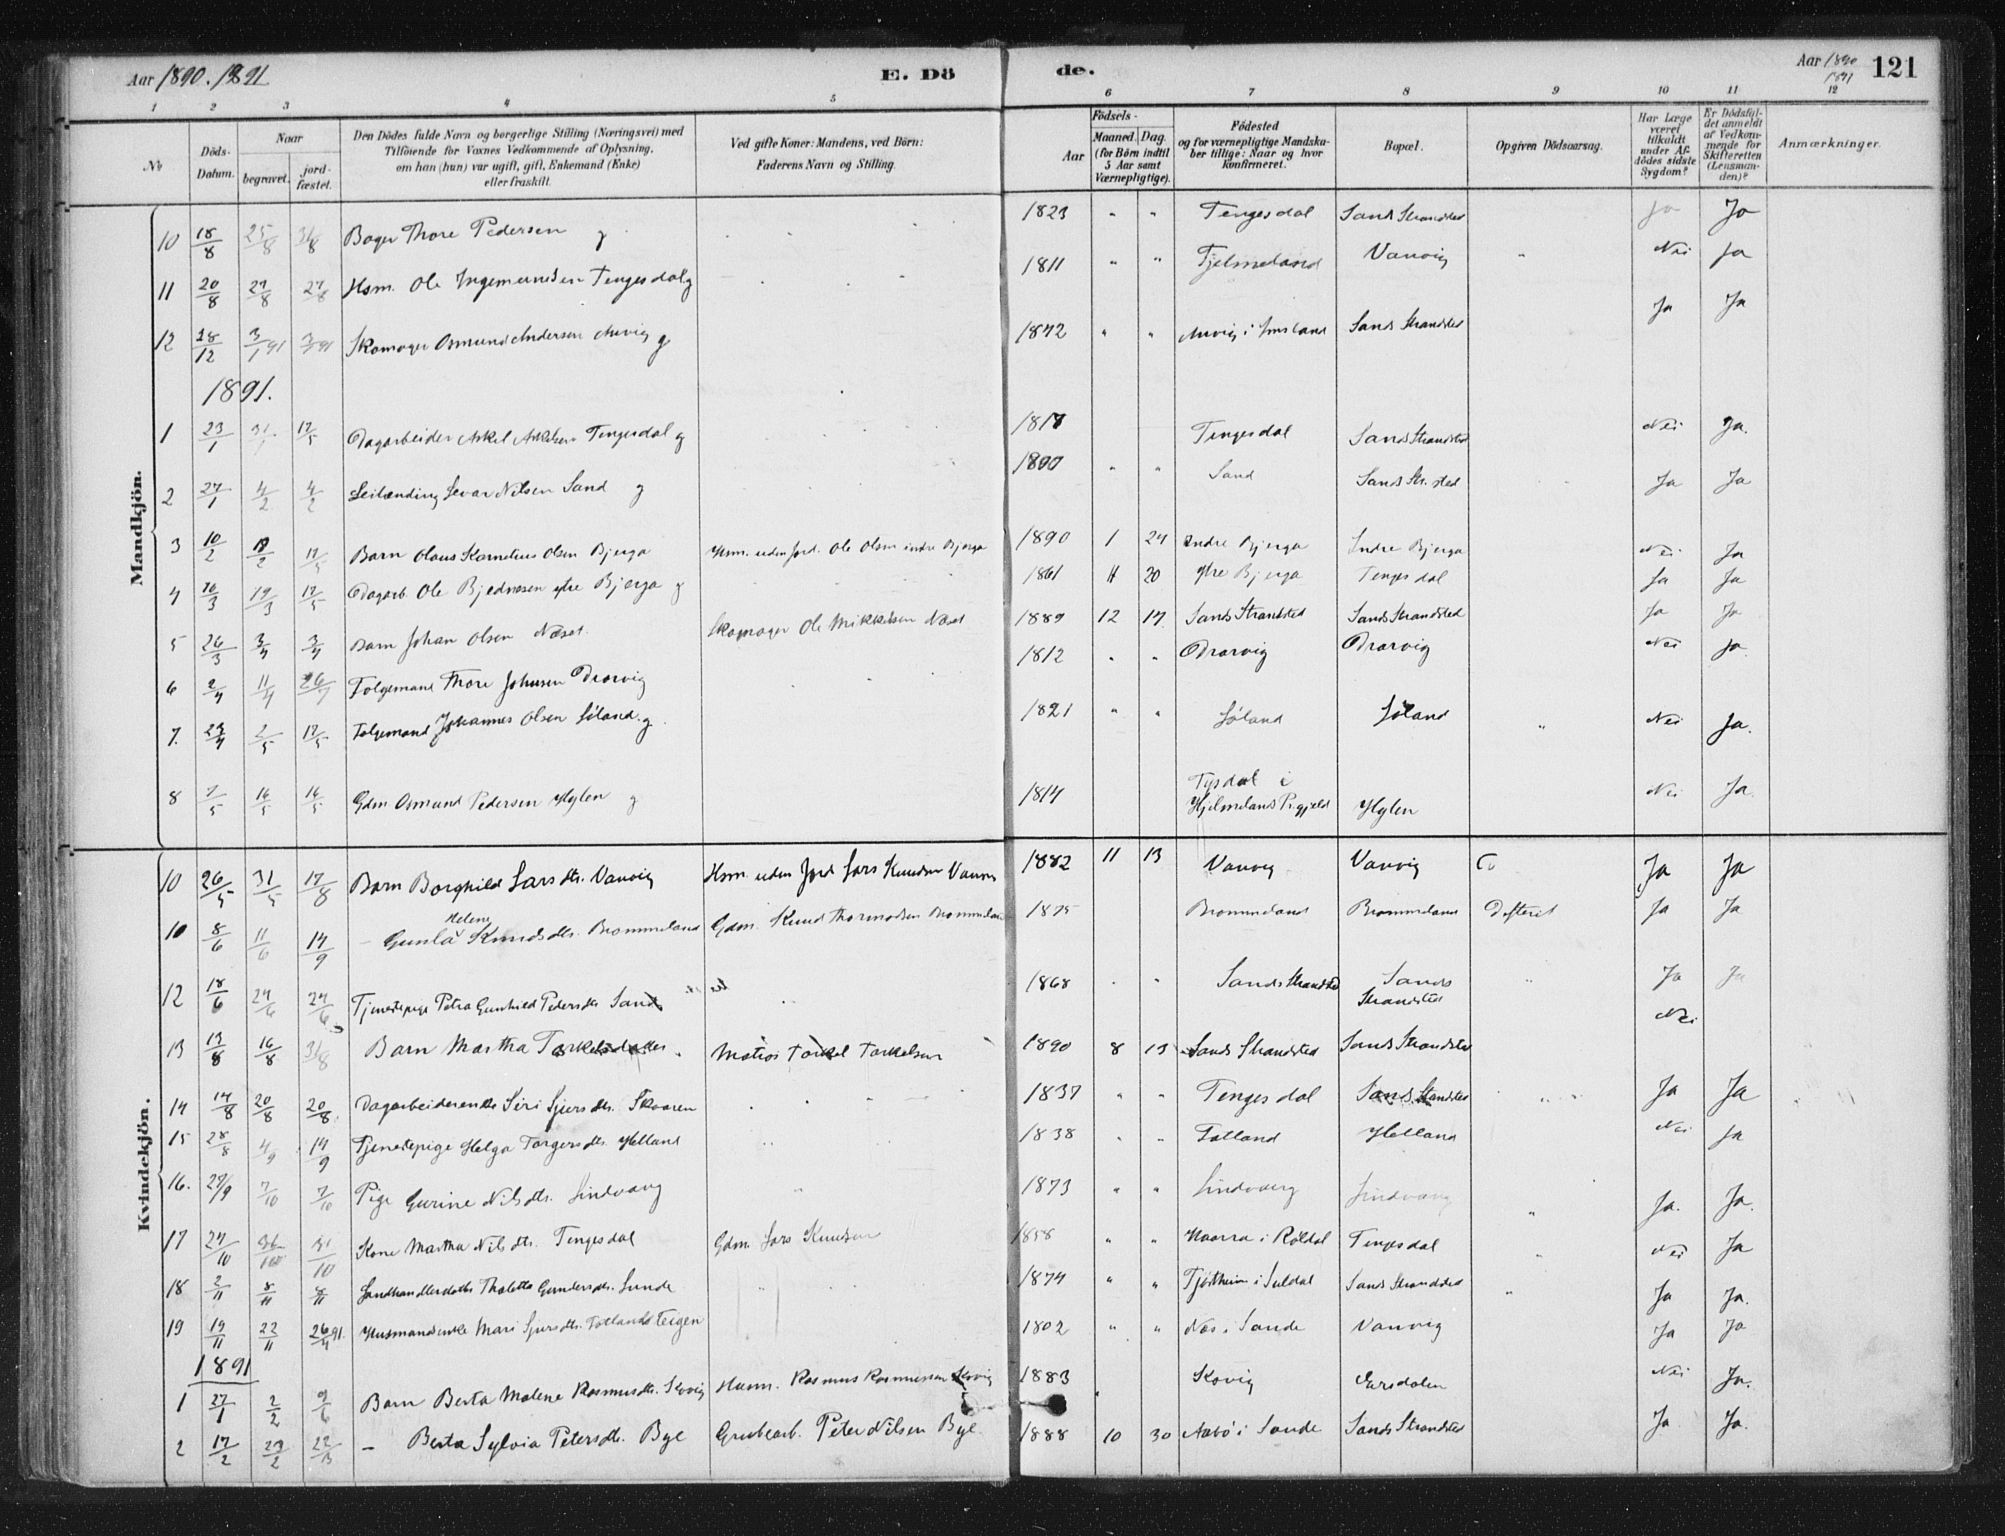 Aar 1890. 1891
E. Dö
de.
Aar 1890 1891
121
1 2 3 4 5 6 7 8 9 10 11 12
No
Döds-Datum.
Naar
begravet.
jord-fæstet.
Den Dödes fulde Navn og borgerlige Stilling (Næringsvei) med
Tilföiende for Voxnes Vedkommende af Oplysning,
om han (hun) var ugift, gift, Enkemand (Enke)
eller fraskilt.
Ved gifte Koner: Mandens, ved Börn:
Faderens Navn og Stilling.
Födsels-
Aar
Maaned.
Dag.
(for Börn indtil 5 Aar samt Værnepligtige).
Födested
og for værnepligtige Mandskaber tillige: Naar og hvor konfirmeret.
Bopæl.
Opgiven Dödsaarsag.
Har Læge været tilkaldt under Afdödes sidste Sygdom?
Er Dödsfaldet anmeldt af Vedkommende for Skifteretten (Lensmanden)?
Anmærkninger.
Mandkjön.
10 18/8 25/8 31/8 Bager Thore Pedersen g 1823 " " Tengesdal Sands Strandsted Ja Ja
11 20/8 27/8 27/8 Hsm. Ole Ingemundsen Tengesdal g 1811 " " Tjelmeland Vanvig " Nei Ja
12 28/12 3/1 91 3/1 91 Skomager Osmund Andersen g 1872 " " i Imsland Sands Strandsted Ja Ja
1891.
1 23/1 31/1 17/5 Dagarbeider Askel Tengesdal g 1817 Tengesdal Sands Strandsted Nei Ja.
2 27/1 4/2 4/2 Leilænding Nilsen Sand g " " Sand Sands Str. sted Ja Ja
3 10/2 17/5 Barn Olaus Kornelius Olsen Bjerga Hsm. uden Jord. Ole Olsen indre Bjerga 1890 1 24 Indre Bjerga Indre Bjerga Nei Ja
4 16/3 19/3 17/5 Dagarb. Ole ytre Bjerga g 1861 20 ytre Bjerga Tengesdal Ja Ja
5 26/3 3/4 3/4 Barn Johan Olsen Næset. Skomager Ole Mikkelsen Næset 1889 12 17 Sands Strandsted Sands Strandsted Ja Ja
6 2/4 11/4 Folgemand Thore Johnsen Drarvig 1812 " " Drarvig Drarvig Nei Ja
7. 2/5 17/5 Folgemand Johannes Olsen Löland. g. 1821 " " Löland Löland " Nei Ja.
8 7/5 16/5 16/5 Gdm Osmund Pedersen Hylen g 1814 Tysdal i Hjelmelands Pr.gjeld Hylen Nei Ja.
Kvindekjön.
10 26/5 31/5 17/8 Barn Borghild Larsdtr. Vanvig Hsm. uden Jord Lars Knudsen 1882 11 13 Vanvig Vanvig Ja Ja
10 8/6 11/6 14/9 — Helene Knudsdtr. Brommeland Gdm. Knud Thormodsen Brommeland 1875 Brommeland Brommeland Difterit Ja Ja
12 18/6 24/6 24/6 Tjenestepige Petra Gunhild Pedersdtr. Sand 1868 " " Sands Strandsted Sands Strandsted " Ja Ja
13 13/8 16/8 31/8 Barn Martha Torkelsdatter Matros Torkel Torkelsen 1890 8 13 Sands Strandsted Sands Strandsted Nei
14 14/8 20/8 20/8 Dagarbeiderenke Siri Sjursdtr. Skaaren 1837 " " Tengesdal Sands Strandsted Ja Ja
15 28/8 4/9 14/9 Tjenestepige Helga Torgersdtr. Helland 1838 " " Fatland Helland Nei Ja
16. 27/9 7/10 7/10 Pige Gurine Nilsdtr. Lindvang 1873 " " Lindvang Lindvang " Ja. Ja.
17 27/10 31/10 Kone Martha Nilsdtr. Tengesdal Gdm. Lars Knudsen 1858 " " i Röldal Tengesdal " Nei Ja
18 2/11 8/11 8/11 Landhandlerdatter Gundersdtr. Sunde 1874 " " Tjöstheim i Suldal Sands Strandsted " Ja Ja.
19 19/11 22/11 26/4 91. Husmandsenke Mari Sjursdtr. Fatlands Teigen 1802 " " Næs i Sande Vanvig Ja Ja
1891
1 27/1 2/2 9/6 Barn Berta Malene Rasmusdtr. Skovig Husm. Rasmus Rasmussen Skovig 1883 " Skovig Nei Ja.
2 17/2 22/2 — Berta Sylvia Petersdtr. Bye Grubearb. Peter Nilsen Bye 1888 10 30 Aabö i Sande Sands Strandsted Ja Ja.